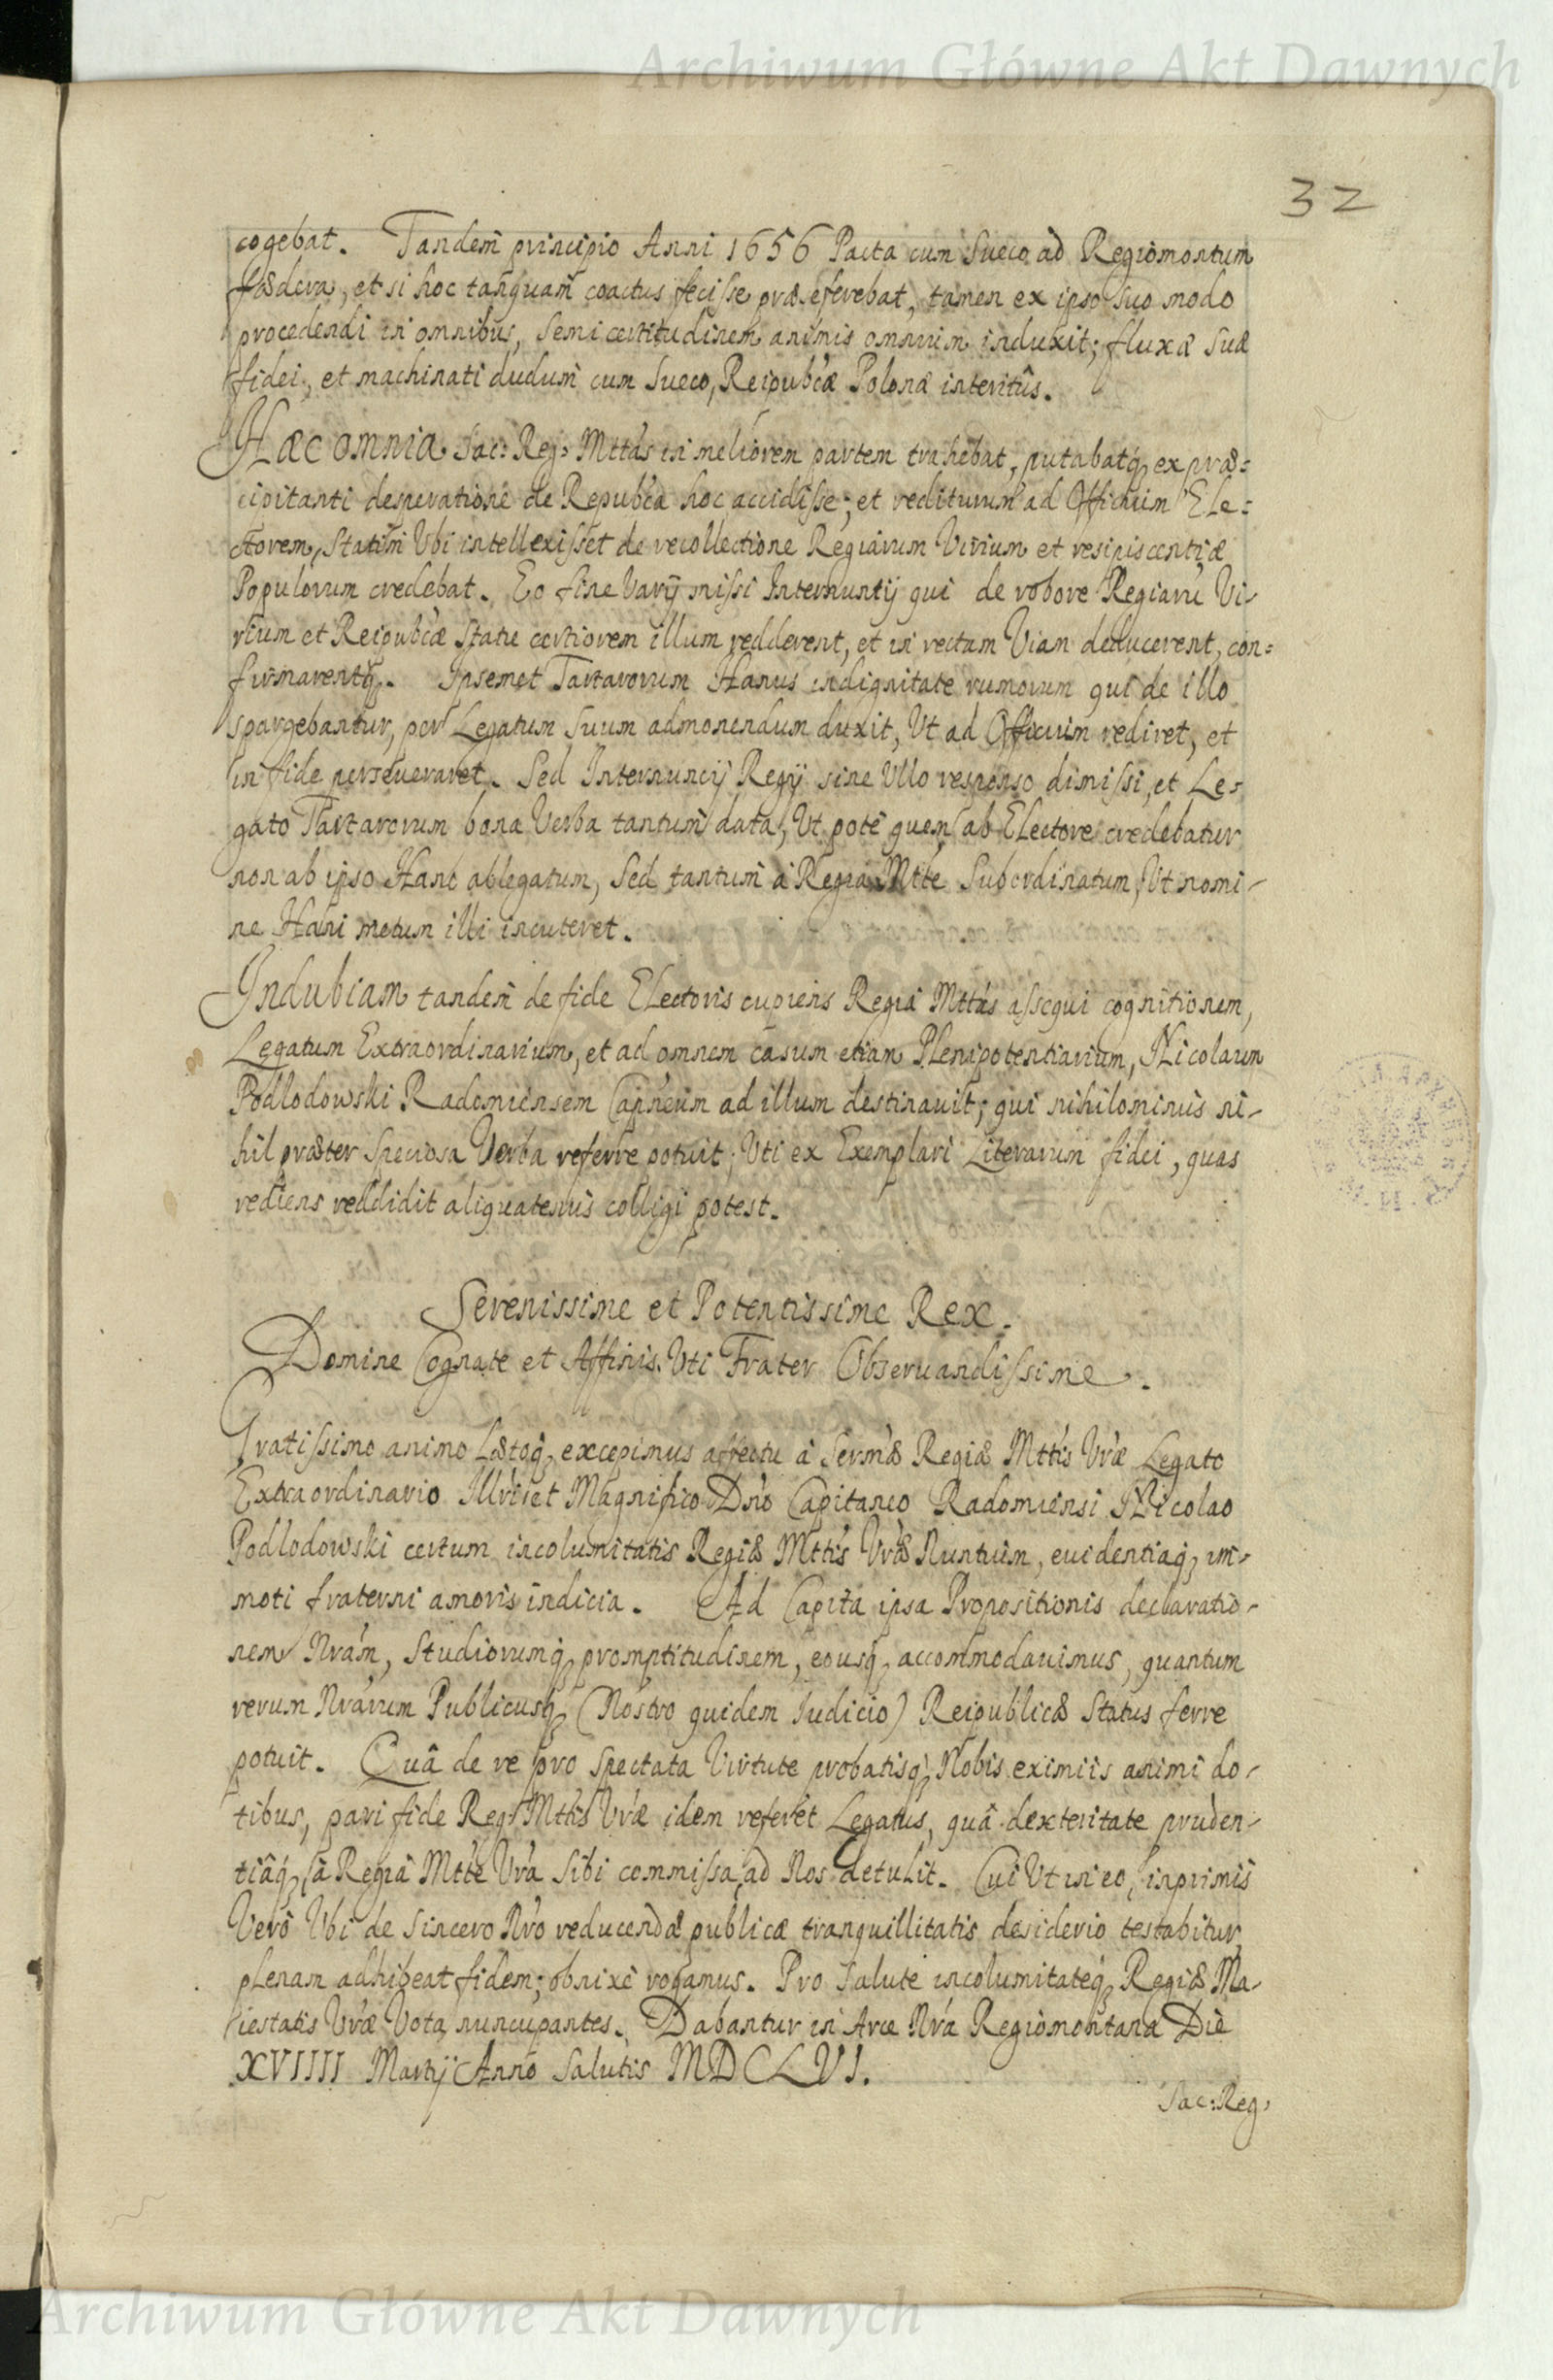 Archiwum Główne Akt Dawnych
32
cogebat. Tandem̃ principio Anni 1656 Pacta cum Sueco ad Regiomontum
fædera, et si hoc tanquam̃ coactus fecisse præseferebat, tamen ex ipso suo modo
procedendi in omnibus, semi certitudinem animis omnium induxit; fluxæ suæ
fidei, et machinati dudum̃ cum Sueco, Reipubcæ Polonæ interitûs.
Hæc omnia Sac: Reg: Mttas in meliorem partem trahebat, putabatq, ex præ:
cipitanti desperatione de Repubca hoc accidisse; et rediturum ad Officium Ele:
ctorem, statim̃ Ubi intellexisset de recollectione Regiarum Virium et resipiscentiæ
Populorum credebat. Eo fine Varÿ missi Internuntÿ qui de robore Regiarũ Vi-
rium et Reipubcæ statu certiorem illum redderent, et in rectam Viam deducerent, con=
firmarentq. Ipsemet Tartarorum Hanus indignitate rumorum qui de illo
spargebantur, per Legatum suum admonendum duxit, Ut ad Officium rediret, et
in fide perseueraret. Sed Internuncÿ Regÿ sine Ullo responso dimissi, et Le-
gato Tartarorum bona Verba tantum̃ data, Ut pote quem ab Electore credebatur
non ab ipso Hano ablegatum, sed tantum̃ à Regia Mtte subordinatum, Ut nomi-
ne Hani metum illi incuteret.
Indubiam tandem̃ de fide Electoris cupiens Regia Mttas assequi cognitionem,
Legatum Extraordinarium, et ad omnem casum etiam Plenipotentiarium, Nicolaum
Podlodowski Radomiensem Capneum ad illum destinauit; qui nihilominus ni-
hil præter speciosa Verba referre potuit; Uti ex Exemplari Literarum fidei, quas
rediens reddidit aliquatenus colligi potest.
Serenissime et Potentissime Rex.
Domine Cognate et Affinis Uti Frater Obseruandissime.
Gratissimo animo Lætoq, excepimus affectu à Sermæ Regiæ Mttis Vræ Legato
Extraordinario Illri et Magnifico Dno Capitaneo Radomiensi Nicolao
Podlodowski certum incolumitatis Regiæ Mttis Vræ Nuntium, euidentiaq, im-
moti fraterni amoris indicia. Ad Capita ipsa Propositionis declaratio-
nem Nram, studiorumq, promptitudinem, eousq, accommodauimus, quantum
rerum Nrarum Publicusq, (Nostro quidem Iudicio) Reipublicæ status ferre
potuit. Quâ de re pro spectata Virtute probatisq, Nobis eximiis animi do-
tibus, pari fide Reg: Mttis Vræ idem referet Legatus, quâ dexteritate pruden-
tiâq, à Regia Mtte Vra sibi commissa, ad Nos detulit. Cui Ut in eo, inprimis
Verò Ubi de sincero Nro reducendæ publicæ tranquillitatis desiderio testabitur
plenam adhibeat fidem; obnixè rogamus. Pro salute incolumitateq, Regiæ Ma-
iestatis Vræ Vota nuncupantes. Dabantur in Arce Nra Regiomontana Die
XVIIII Martÿ Anno Salutis MDCLVI.
Sac: Reg:
Archiwum Główne Akt Dawnych